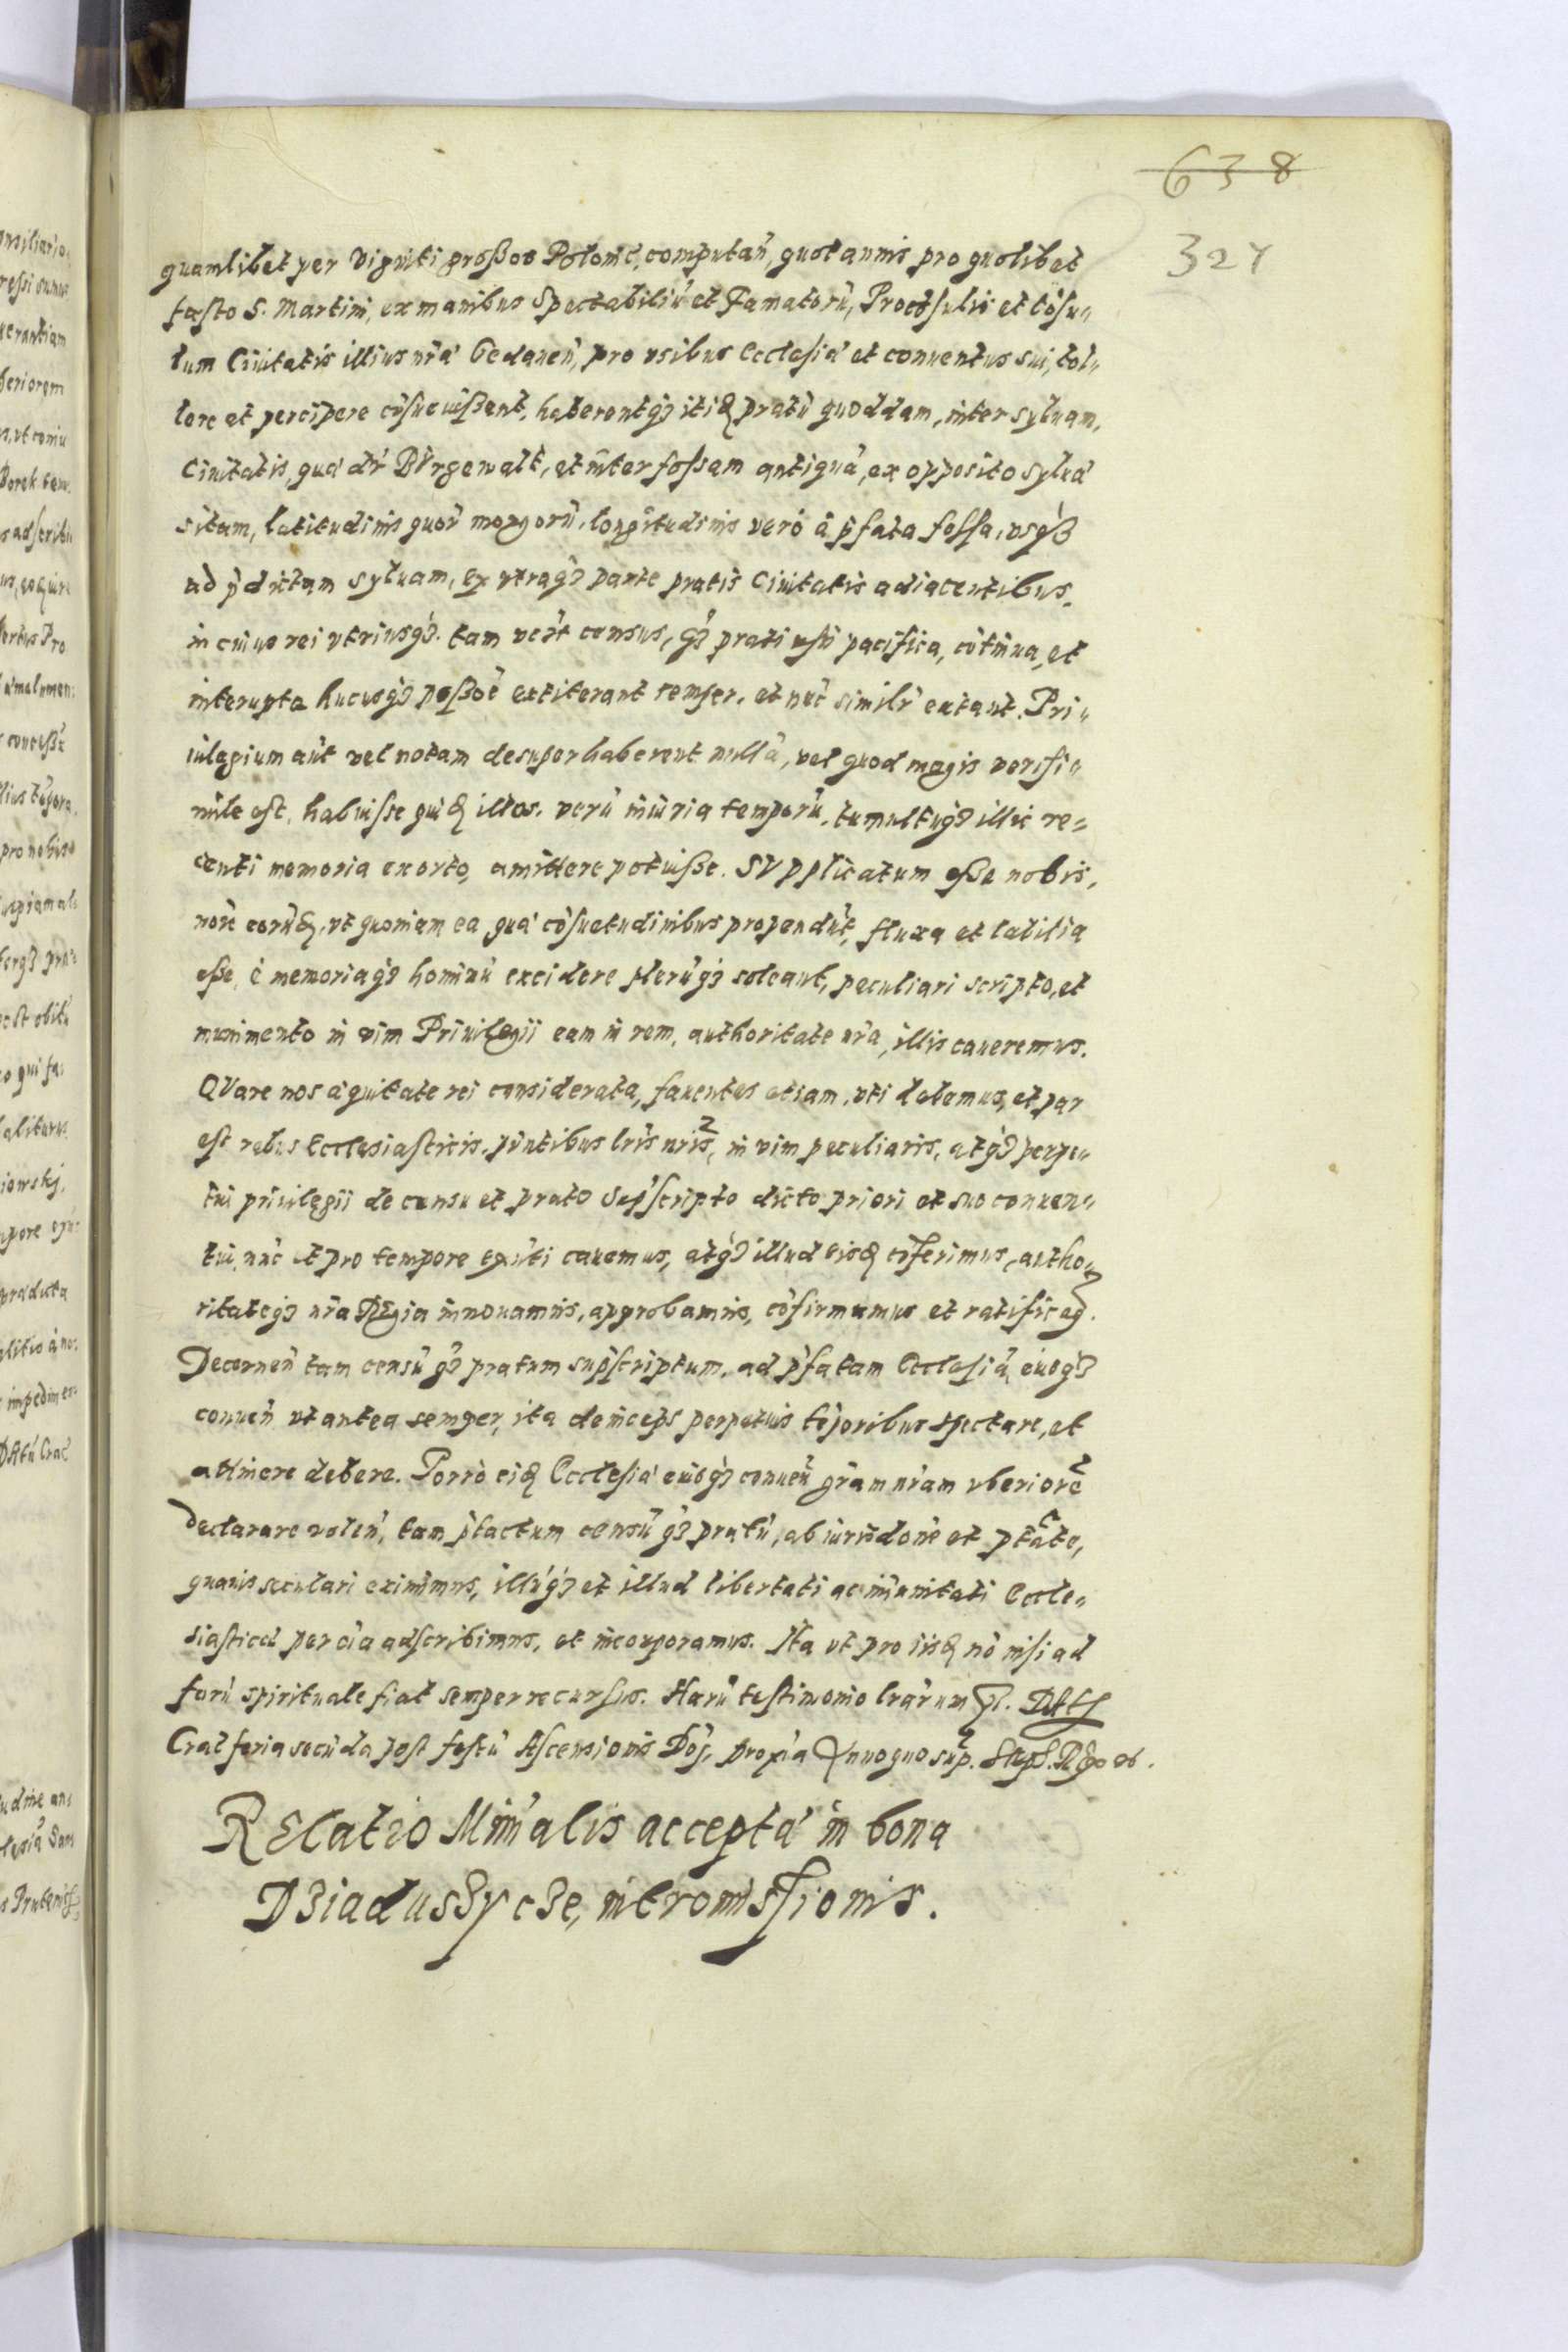 638
327
quamlibet per viginti großos Polonic̃, computañ, quotannis pro quolibet
fasto S. Martini, ex manibus Spectabiliũ et Famatorũ, Procõsulis et Cõsu„
lum Ciuitatis illius nr̃a Gedaneñ, pro vsibus Ecclesiæ et conuentus sui, tol„
lere et percipere cõsueuißent, haberentq₃ itid pratũ quoddam, inter syluam,
Ciuitatis, quæ dr̃ Bürgerwalt, et inter fossam antiquã, ex opposito syluæ
sitam, latitudinis quor̃ morgorũ, longitudinis verò à p̃fata fossa, vsq₃
ad p̃dictam syluam, ex vtraq₃ parte pratis Ciuitatis adiacentibus.
in cuius rei vtriusq₃. tam vec̃t census, q₃ prati vsu pacifica, cõtinua, et
interupta hucusq₃ poßoẽ extiterant semper, et nũc similr̃ extant. Pri„
uilegium aũt vel notam desuper haberent nullã, vel quod magis verisi„
mile est, habuisse quid illos. verũ iniuria temporũ, tumultuq₃ illic re„
centi memoria exorto, amittere potuisse. SVpplicatum esse nobis,
noĩe eorũd, vt quoniam ea quæ cõsuetudinibus propendũt, fluxa et labilia
esse, è memoriaq₃ hominũ excidere plerũq₃ soleant, peculiari scripto, et
munimento in vim Priuilegii eam in rem, authoritate nr̃a, illis caueremus.
QVare nos æquitate rei considerata, fauentes etiam, vti debemus, et par
est rebus Ecclesiasticis, pñtibus lr̃is nr̃is, in vim peculiaris, atq₃ perpe„
tui priuilegii de censu et prato supscripto dicto priori et suo conuen„
tui, nũc et pro tempore exñti cauemus, atq₃ illud eisd cõferimus, autho„
ritateq₃ nr̃a Regia innouamus, approbamus, cõfirmamus et ratificam̃.
Decerneñ tam censũ q₃ pratum supscriptum, ad p̃fatam Ecclesiã, eiusq₃
conueñ vt antea semper, ita deinceps perpetuis tẽporibus spectare, et
attinere debere. Porrò eid Ecclesiæ eiusq₃ conueñ gr̃am nr̃am vberiorẽ
declarare voleñ, tam p̃tactum censũ q₃ pratũ, ab iurisdoñe et ptãte,
quauis seculari eximimus, illũq₃ et illud libertati ac imunitati Eccle„
siasticæ per oĩa adscribimus, et incorporamus. Ita vt pro iisd nõ nisi ad
forũ spirituale fiat semper recursus. Harũ testimonio lr̃arum
Crac feria secũda post festũ Ascensionis Doĩ, Anno quo sup.
RElatio Miñalis acceptæ in bona
D3iadus3yc3e, intromissionis.